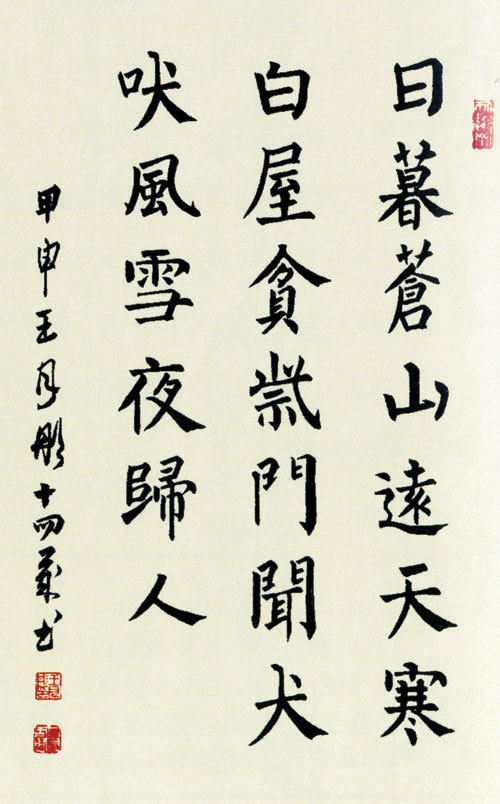 日暮蒼山遠天寒
白屋貧柴門聞犬
吠風雪夜歸人
甲申王月彤十四歲书